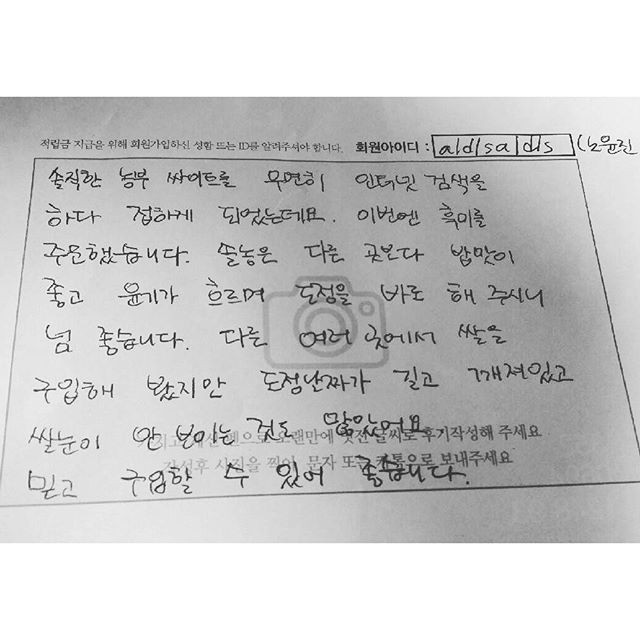 적립금 지급을 위해 회원가입하신 성함 또는 ID를 알려주셔야 합니다. 회원아이디 : a/d/sa/d/s (노윤진
솔직한 농부 싸이트를 우연히 인터넷 검색을
하다 접하게 되었는데요. 이번엔 흑미를
주문했습니다. 쏠농은 다른 곳보다 밥맛이
좋고 윤기가 흐르며 도정을 바로 해 주시니
넘 좋습니다. 다른 여러 곳에서 쌀을
구입해 봤지만 도정날짜가 길고 깨져있고
쌀눈이 안 보이는 것도 많았어요
믿고 구입할 수 있어 좋습니다.
오랜만에 멋진 글씨로 후기작성해 주세요
작성후 사진을 찍어 문자 또는 카톡으로 보내주세요